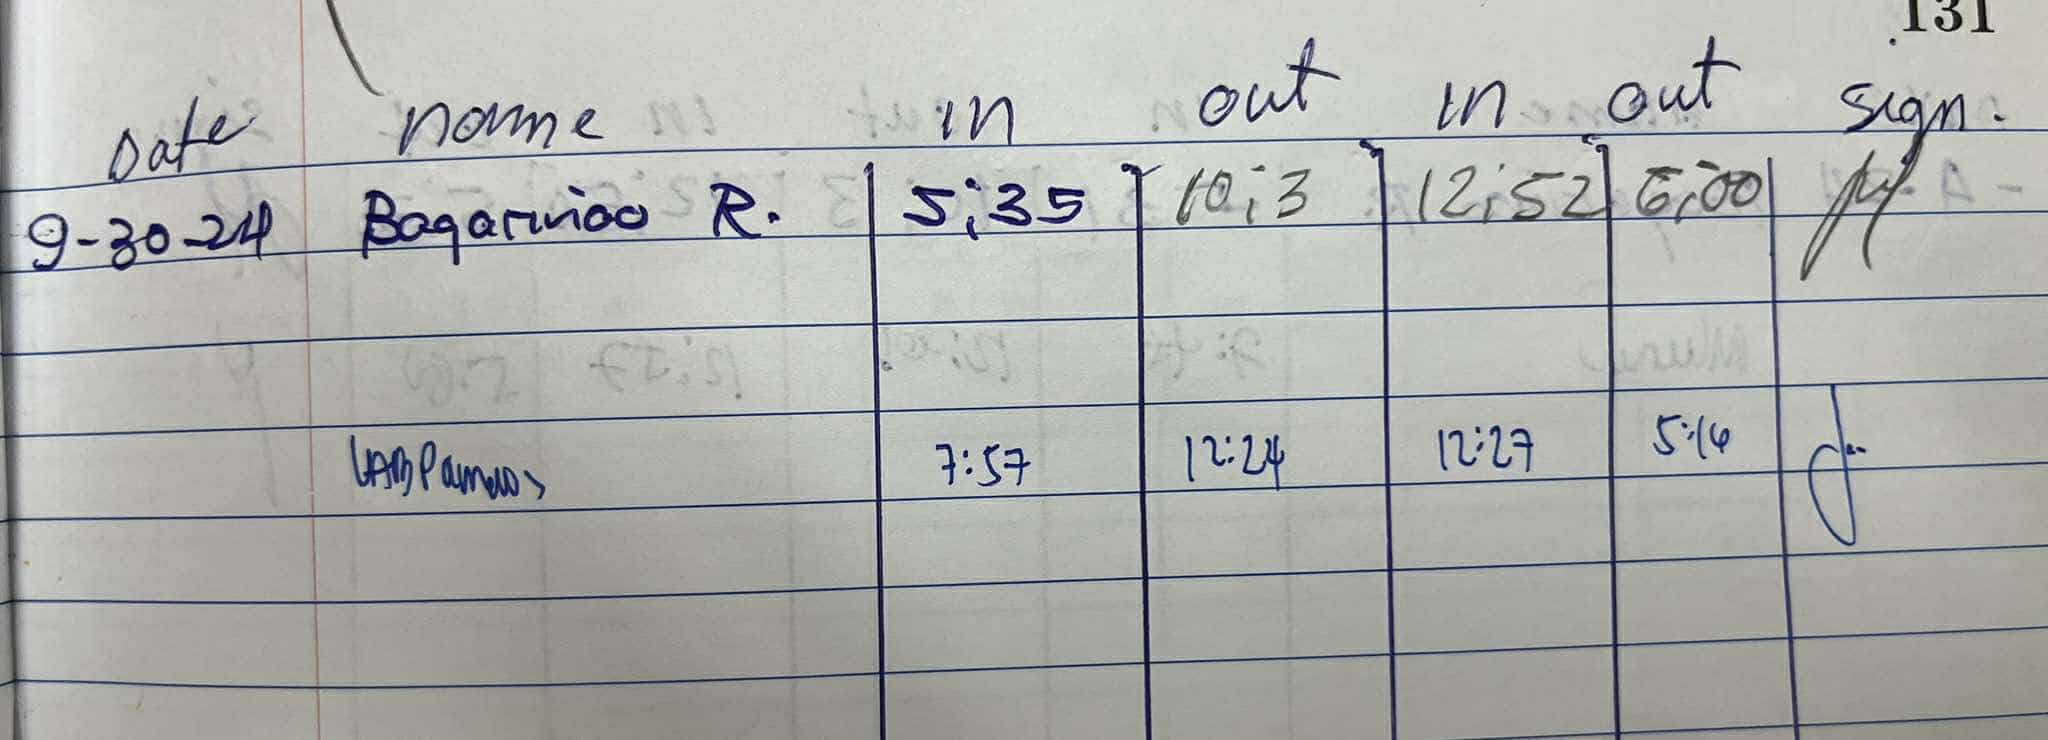 131
Date name in out in out sign.
9-30-24 Bagarinao R. 5;35 10;3 12;52 5;00
7:57 12:24 12:27 5:14